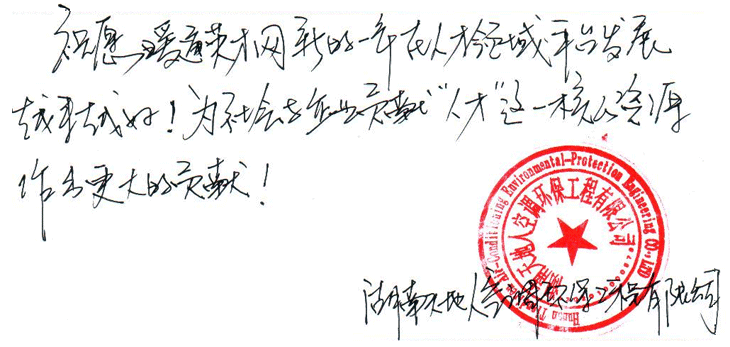 祝愿暖通英才网新的一年在人才领域平台发展
越来越好！为社会各企业贡献“人才”这一核心资源
作出更大的贡献！
湖南天地人空调环保工程有限公司
Air-Conditioning Environmental-Protection Engineering CO.,LTD
湖南天地人空调环保工程有限公司